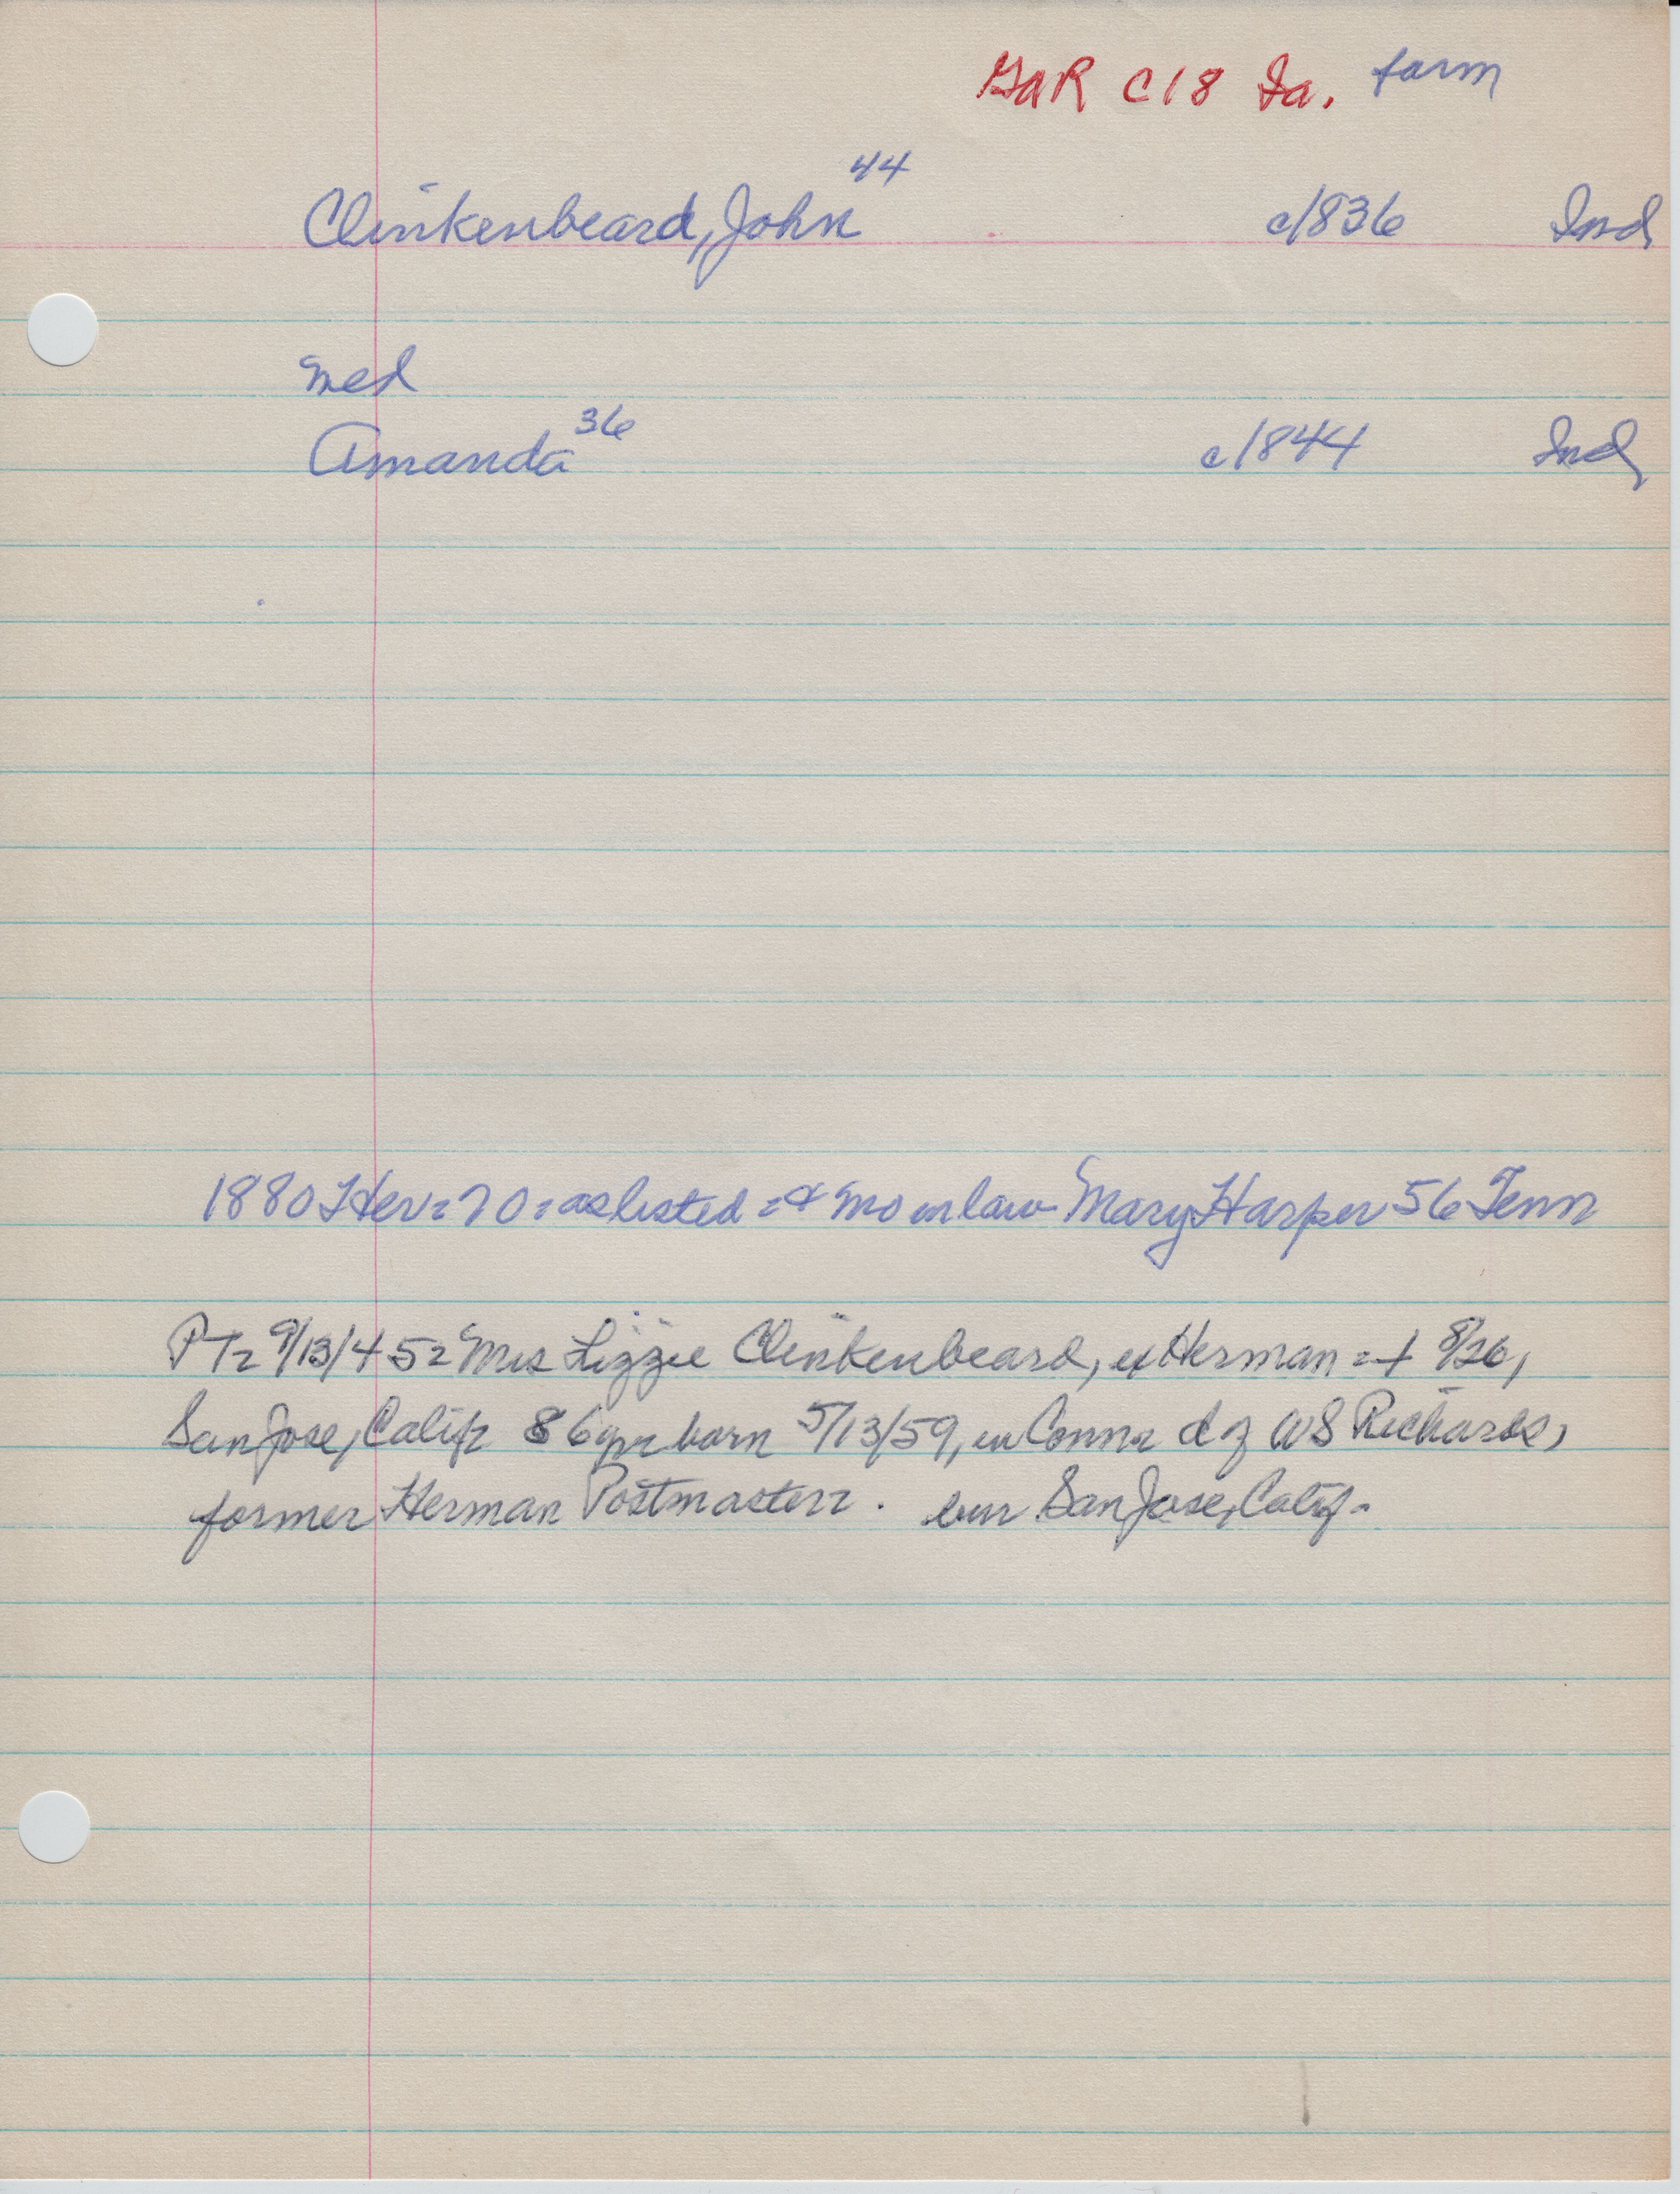 GaR C18 Ia. farm
Clinkenbeard, John 44 c/836 Ind
med
Amanda 36 c/844 Ind
1880 Her = 70 = as listed = & mo in law Mary Harper 56 Tenn
PT= 9/13/45= Mrs Lizzie Clinkenbeard, ex Herman = + 8/26,
San Jose, Calif= 86 yr= born 5/13/59, in Conn= d of WS Richards,
former Herman Postmaster= . bur San Jose, Calif.